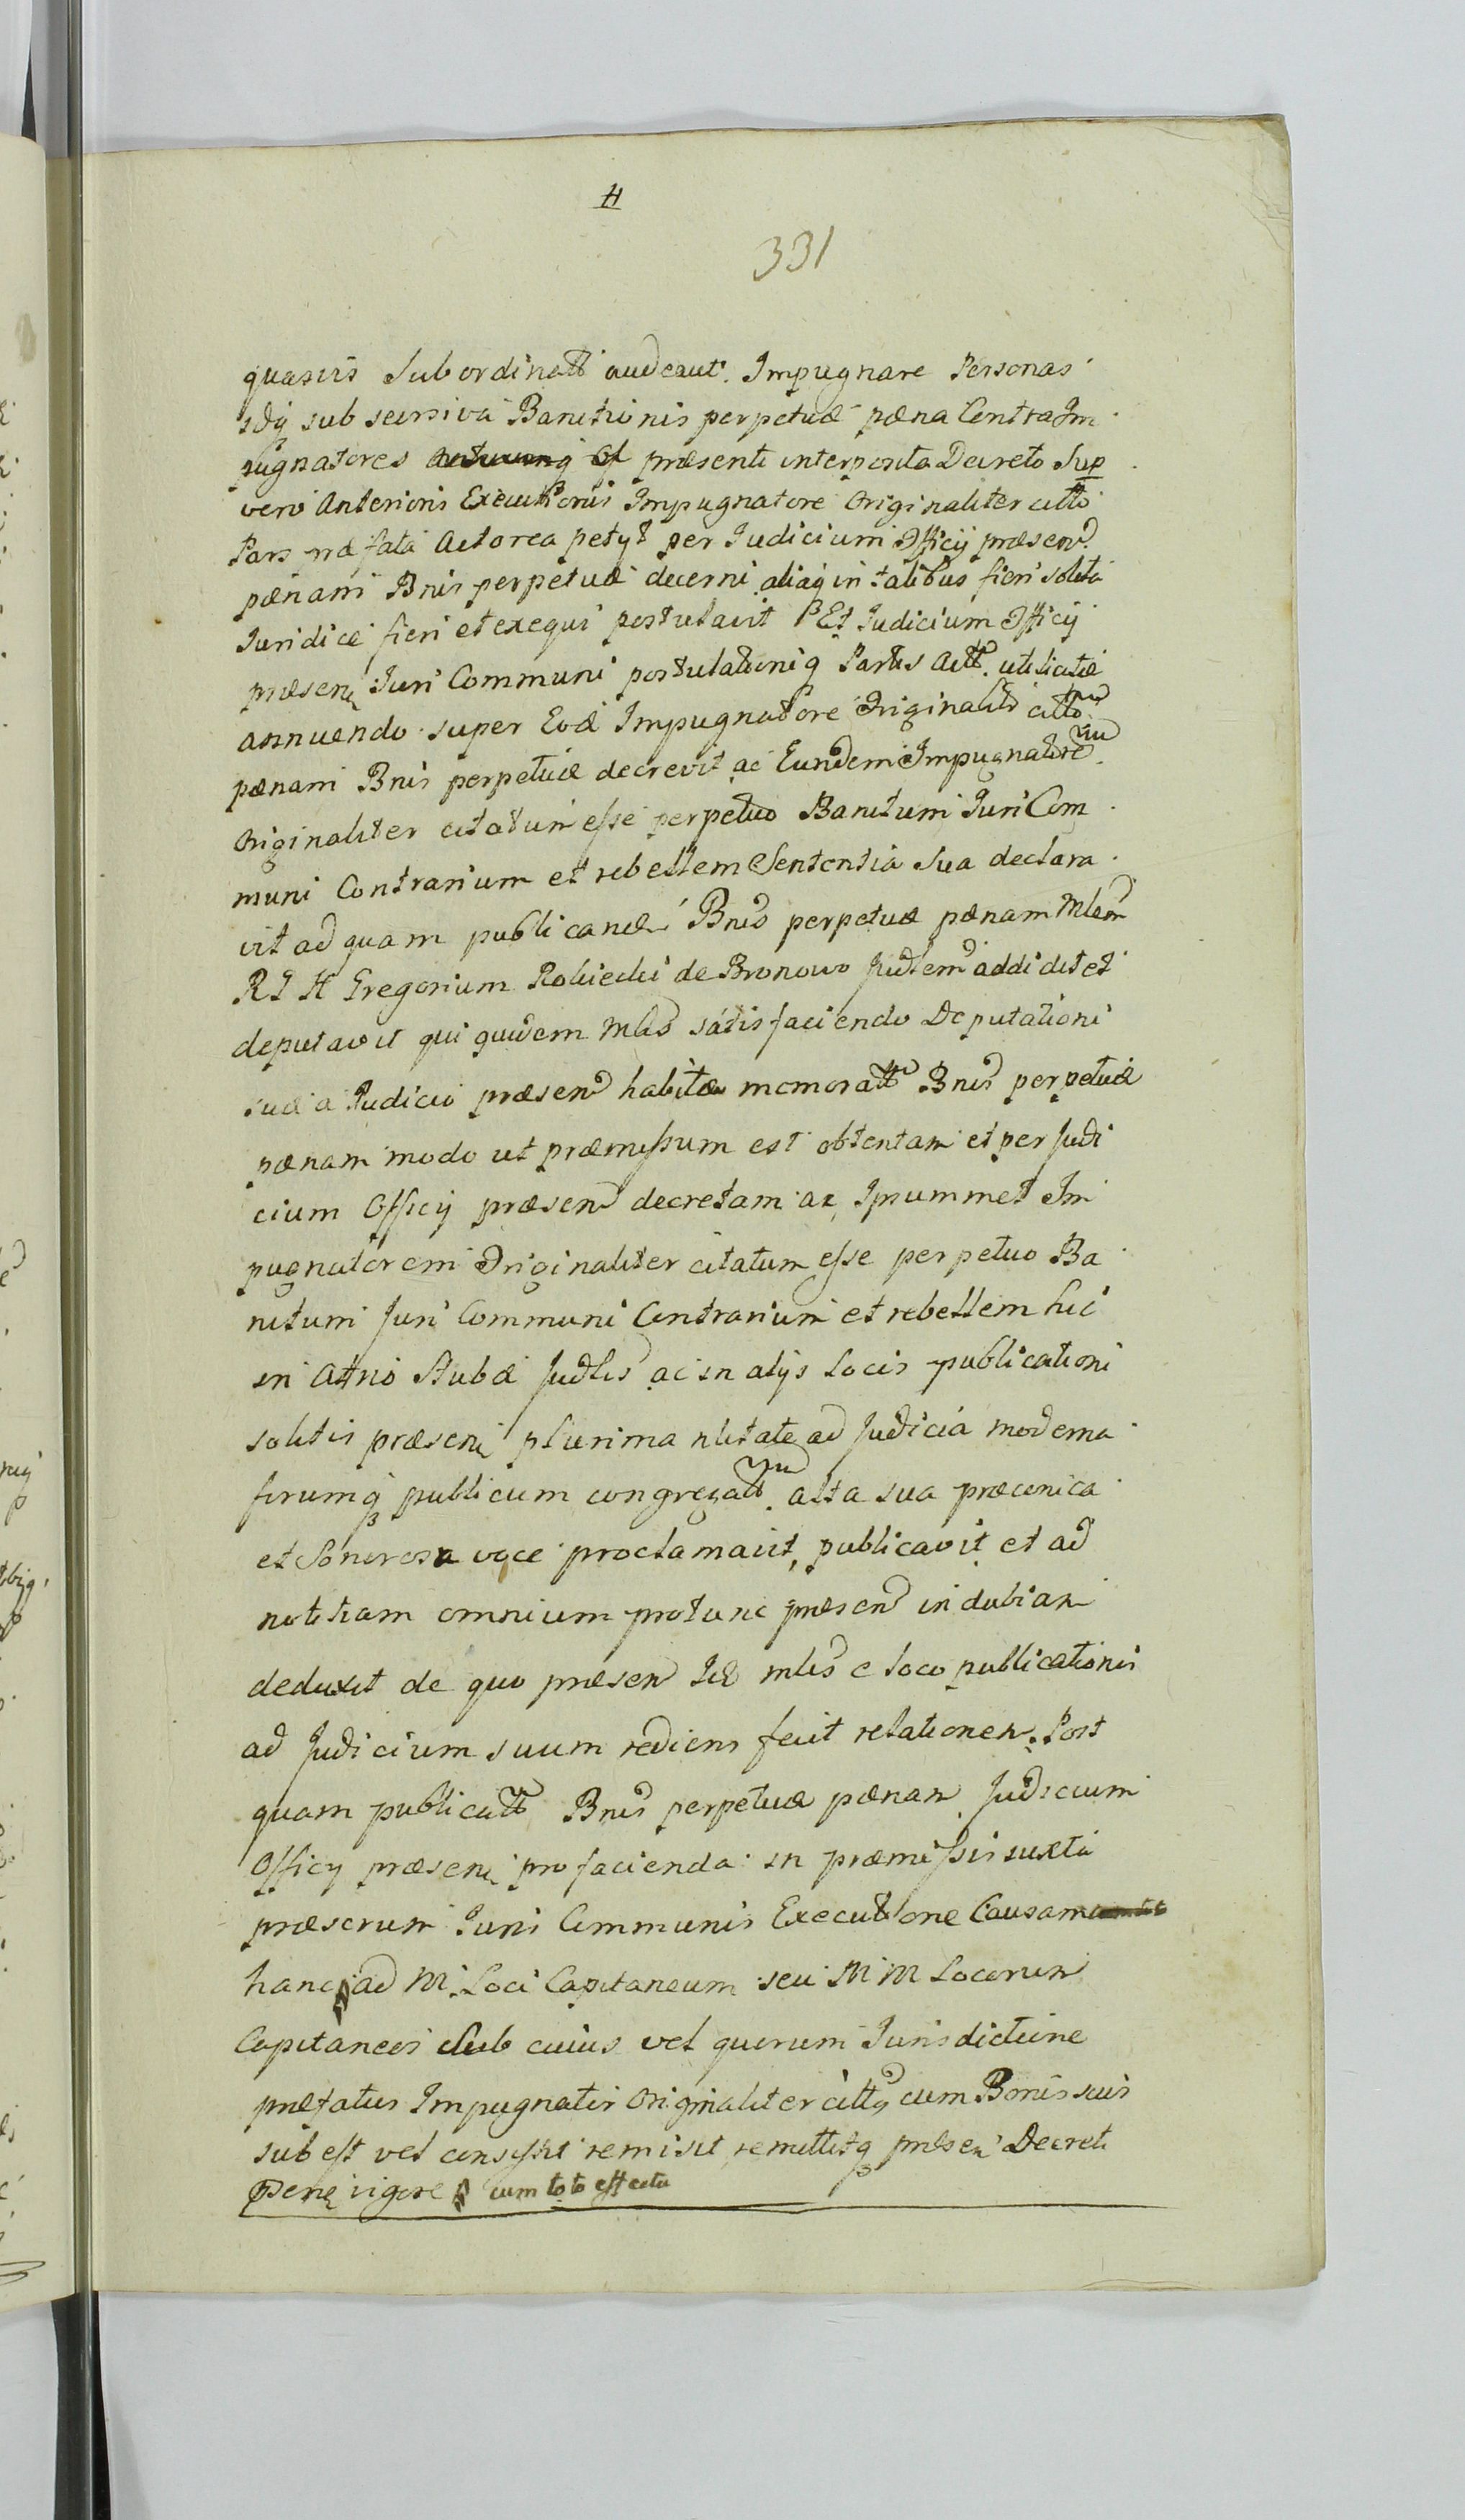 H
331
quasvis Subordinatt audeant. Impugnare Personas
idq sub secusiva Banitionis perpetuæ pæna Contra Im
pugnatores præsenti interposita Decreto Sup
vero Anterioris Executionis Impugnatore Originaliter citto
Pars præfata Actorea petyt per Judicium Officij præsen
pænam Bnis perpetuæ decerni aliaq in talibus fieri solita
Juridice fieri et exequi postulavit Et Judicium Officij
præsen Juri Communi postulationiq Partis Actt. uti licitæ
annuendo super Eod Impugnatore Originalit citto
pænam Bnis perpetuæ decrevit ac Eundem Impugnatore
Originaliter citatum esse perpetuo Banitum Juri Com
muni Contrarium et rebellem Sententia Sua declara
vit ad quam publicand Bnis perpetuæ pænam Mlem
R I H Gregorium Rokiecki de Bronowo Judlem addidit et
deputavit qui quidem Mlis satisfaciendo Deputationi
suæ a Judicio præsen habitæ memoratt Bnis perpetuæ
pænam modo ut præmissum est obtentam et per Judi
cium Officij præsen decretam ac Ipsummet Im
pugnatorem Originaliter citatum esse perpetuo Ba
nitum Juri Communi Contrarium et rebellem hic
in Atrio Stubæ Judlis ac in alijs Locis publicationi
solitis præsen plurima nlitate ad Judicia moderna
forumq publicum congregatt. alta sua præconica
et Sonorosa voce proclamavit, publicavit et ad
notitiam omnium protunc præsen indubiam
deduxit de quo præsen Id mlis e loco publicationis
ad Judicium suum rediens fecit relationem. Post
quam publicatt Bnis perpetuæ pænam Judicium
Officij præsen pro facienda in præmissis iuxta
præscrum Juris Communis Executione Causam
hanc ad M. Loci Capitaneum seu M M Locorum
Capitaneos Sub cuius vel quorum Jurisdictione
præfatus Impugnator Originaliter citts cum Bonis suis
subest vel consistit remisit remittitq præsen Decreti
vigore cum toto effectu